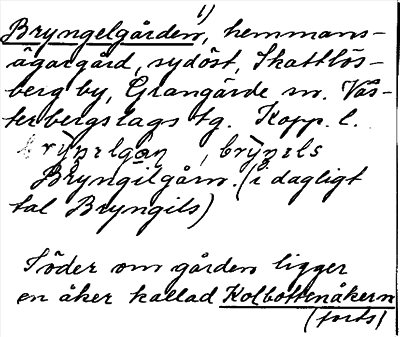 1)
Bryngelgården, hemmans-
ägargård, sydöst, Skattlös-
berg by, Grangärde sn. Väs-
terbergslags tg. Kopp. l.
, brỳŋels
Bryngilgårn. (i dagligt
tal Bryngils)
Söder om gården ligger
en åker kallad Kolbottenåkern
(forts)